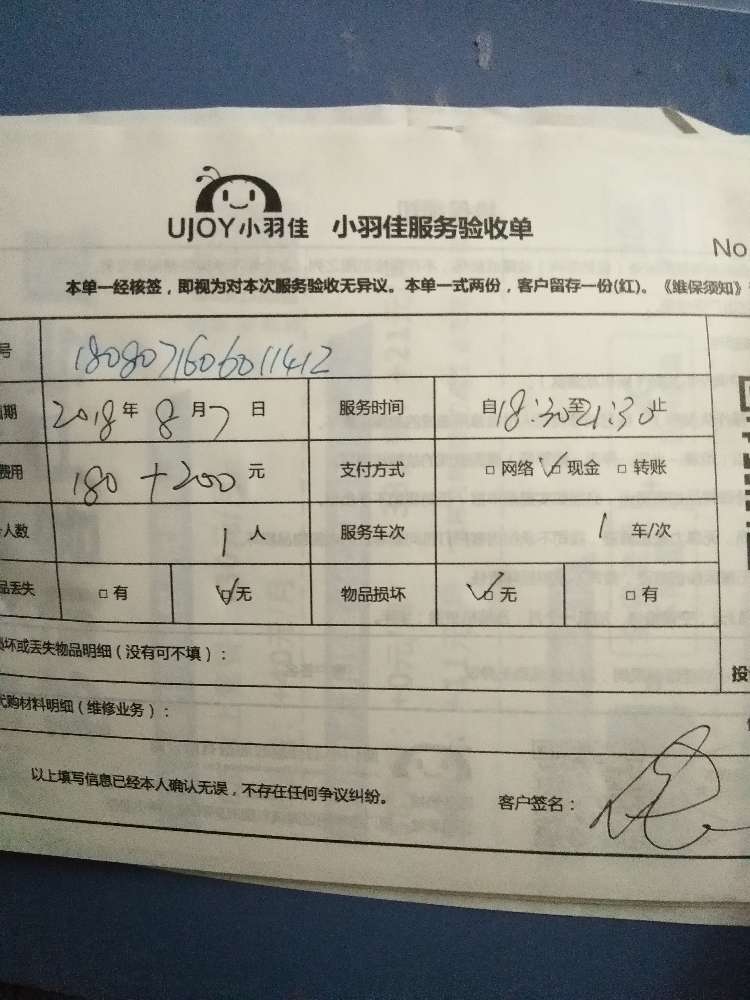 UJOY小羽佳 小羽佳服务验收单
No
本单一经核签，即视为对本次服务验收无异议。本单一式两份，客户留存一份(红)。《维保须知》
号 1808071606011412
期 2018年 8月7日 服务时间 自18:30至21:30止
费用 180+200元 支付方式 □网络 ☑现金 □转账
人数 1人 服务车次 1车/次
品丢失 □有 ☑无 物品损坏 ☑无 □有
损坏或丢失物品明细（没有可不填）：
投
代购材料明细（维修业务）：
以上填写信息已经本人确认无误，不存在任何争议纠纷。 客户签名：